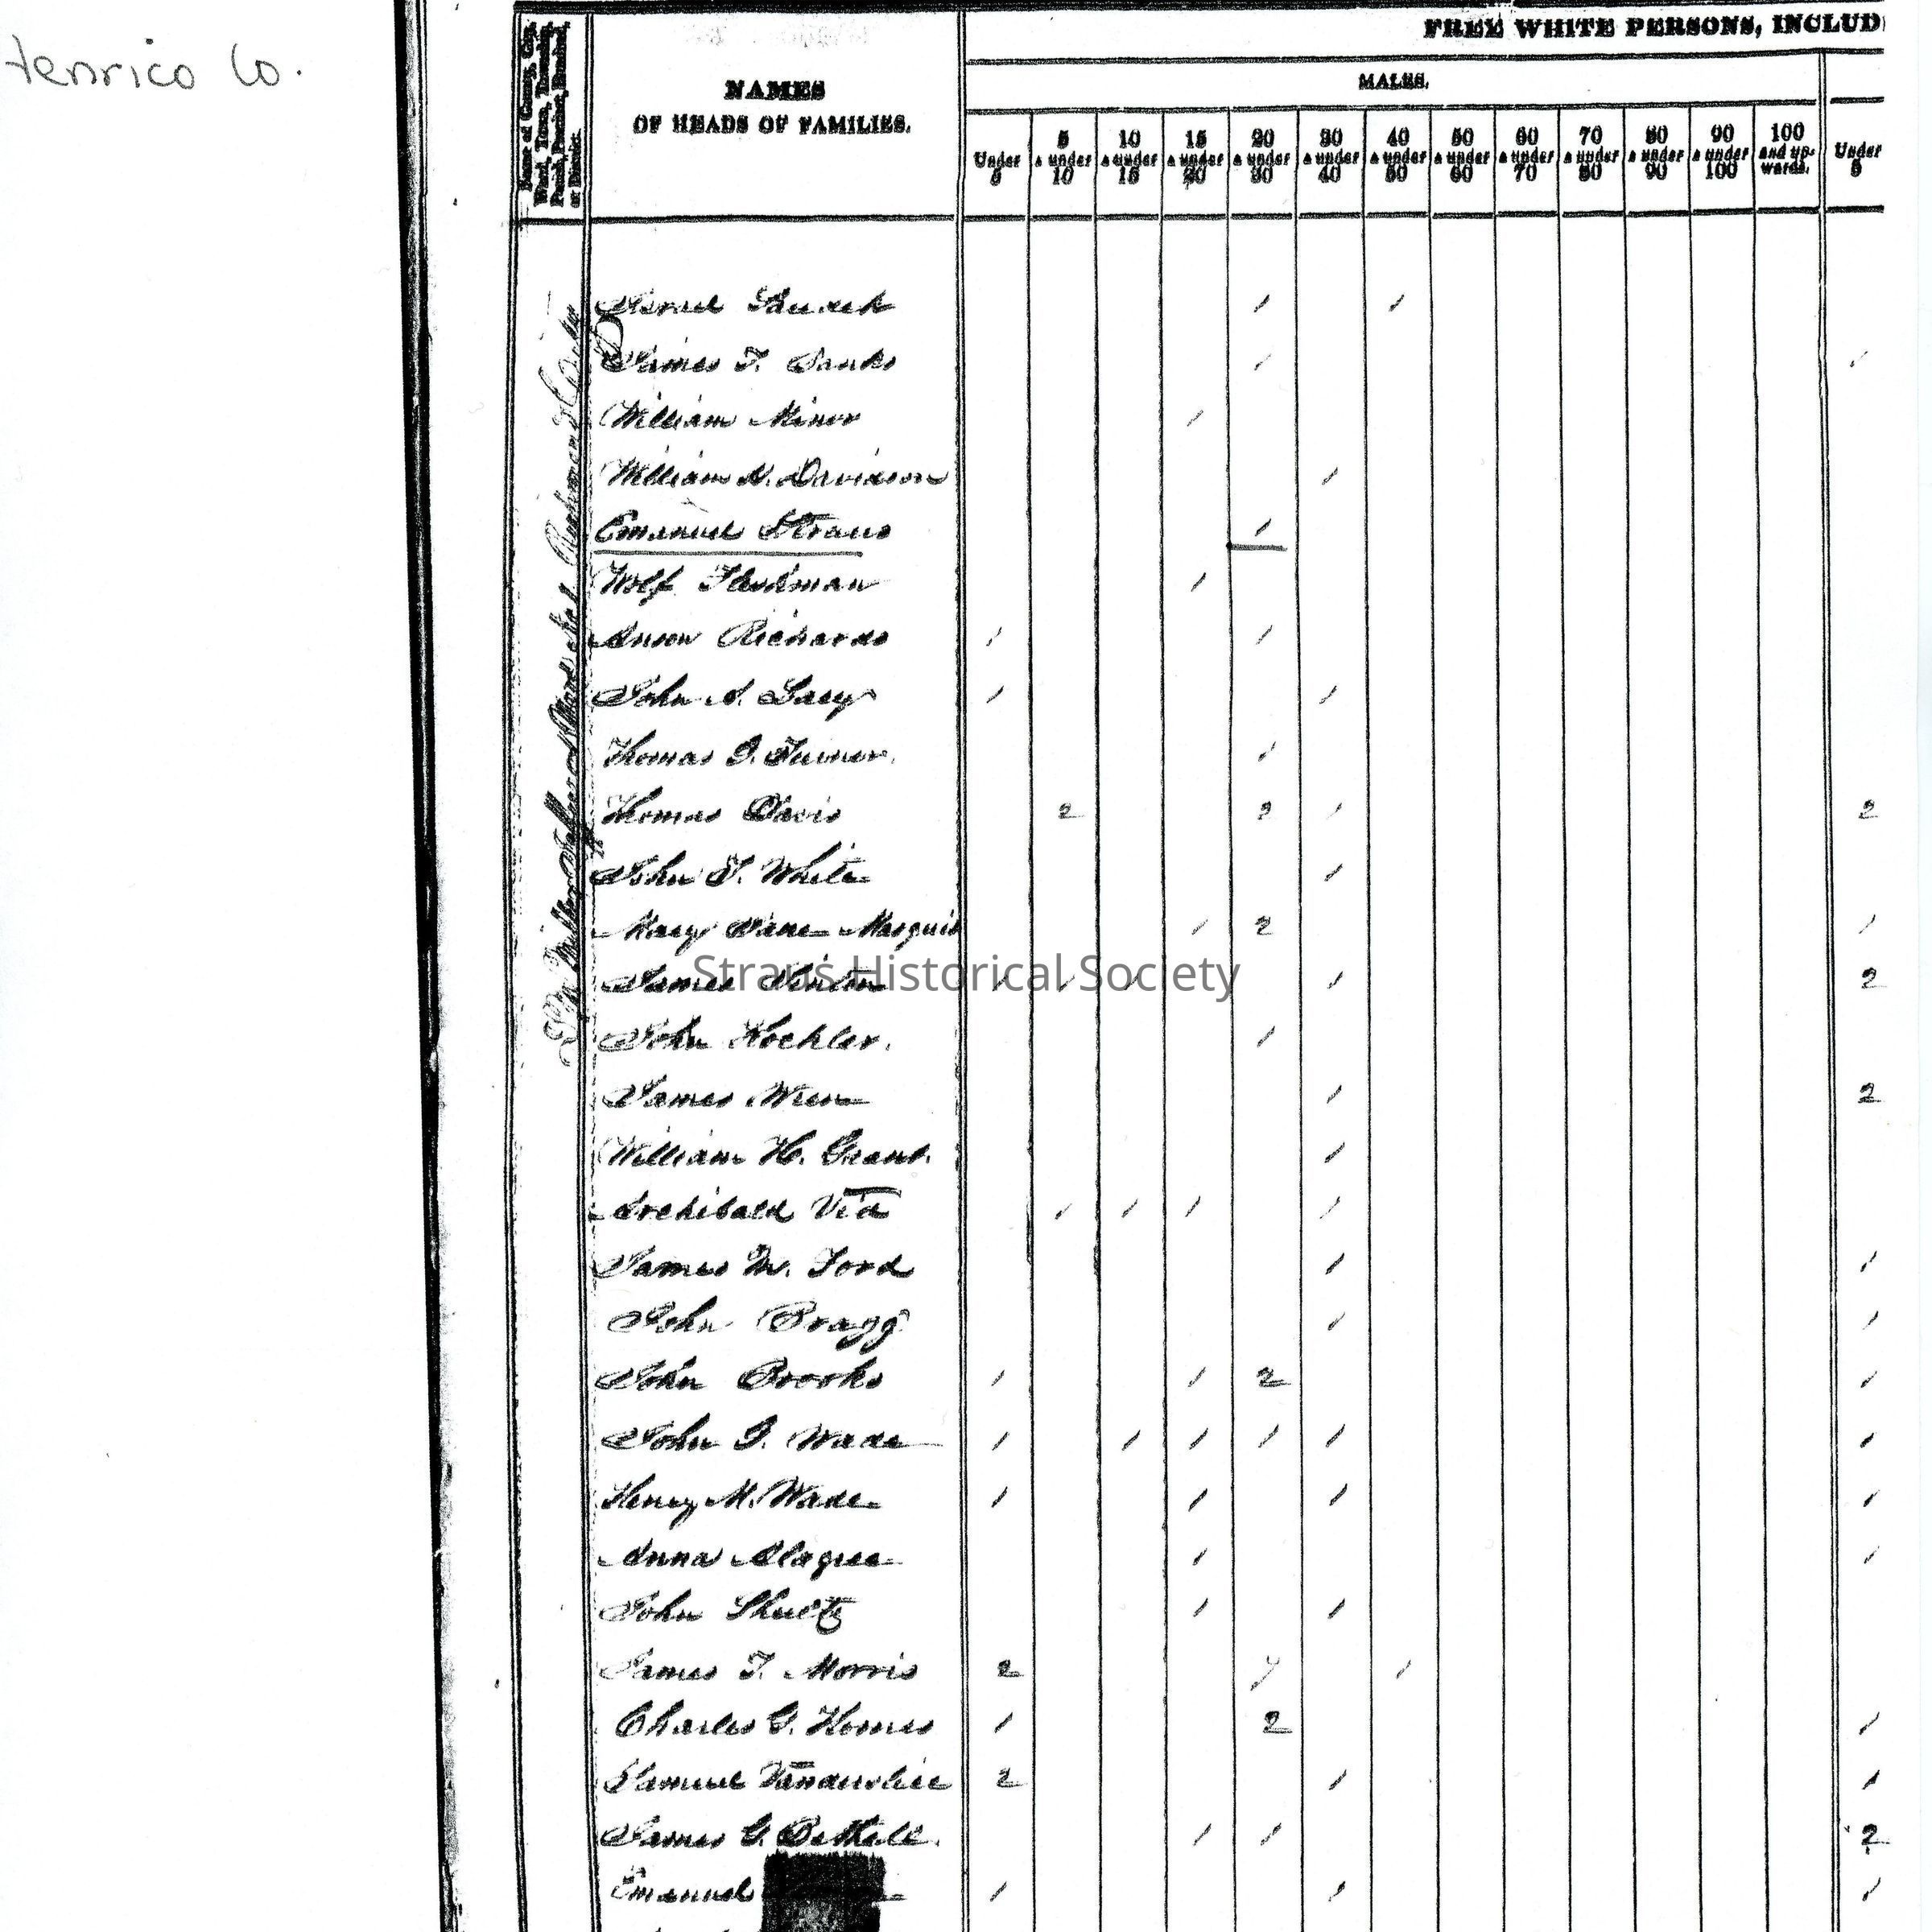 Henrico Co.
FREE WHITE PERSONS, INCLUD
MALES.
Name of County, City, Ward, Town, Township, Parish, Precinct, Hundred, or District.
NAMES
OF HEADS OF FAMILIES.
Under 5 5 & under 10 10 & under 15 15 & under 20 20 & under 30 30 & under 40 40 & under 50 50 & under 60 60 & under 70 70 & under 80 80 & under 90 90 & under 100 100 and upwards. Under 5
Richmond City
1 1
James T. Banks 1 1
William Minor 1
William N. Davidson 1
Emanuel Straus 1
Wolf 1
Anson Richards 1 1
John A. Lacy 1 1
Thomas J. Turner. 1
Thomas Davis 2 2 1 2
John T. White 1
Mary Jane Marquis 1 2 1
James 1 1 1 1 2
John Kochler. 1
James Wren 1 2
William H. Grant. 1
Archibald Via 1 1 1 1
James M. Ford 1 1
John Bragg 1 1
John Brooks 1 1 2 1
John J. Wade 1 1 1 1 1 1
Henry M. Wade 1 1 1 1
Anna 1 1
John Shultz 1 1
James T. Morris 2 1
Charles G. Homes 1 2 1
Samuel 2 1 1
James G. Bethell. 1 1 2
Emanuel 1 1 1
Straus Historical Society